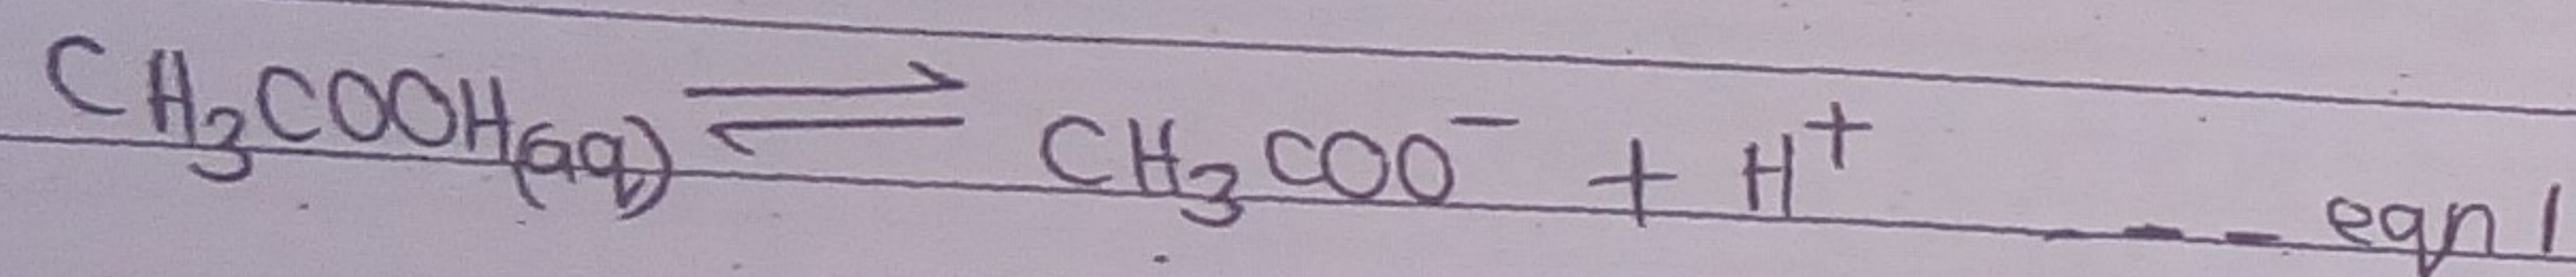 CH₃COOH(aq) ⇌ CH₃COO⁻ + H⁺ --- eqn 1